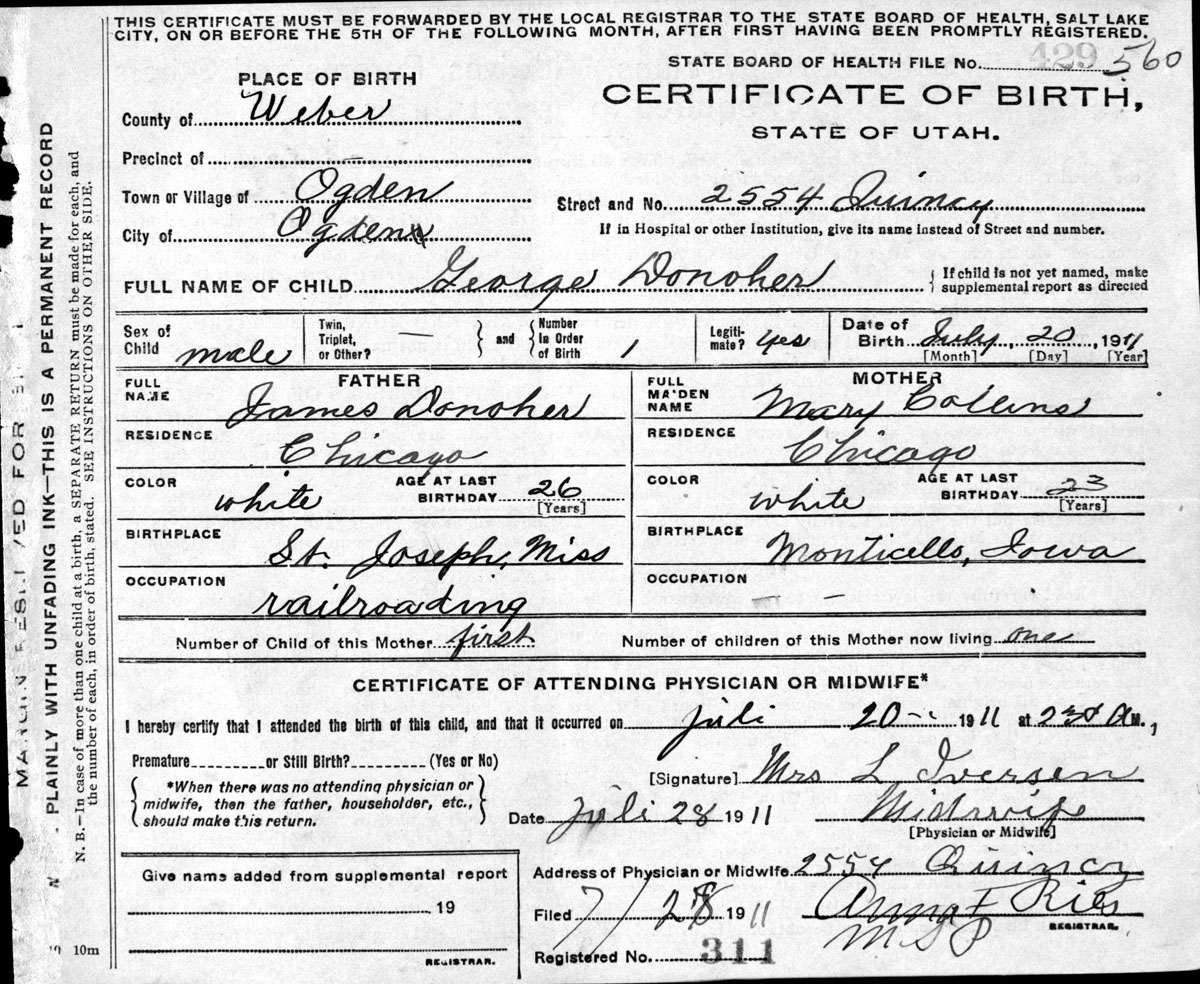 THIS CERTIFICATE MUST BE FORWARDED BY THE LOCAL REGISTRAR TO THE STATE BOARD OF HEALTH, SALT LAKE
CITY, ON OR BEFORE THE 5TH OF THE FOLLOWING MONTH, AFTER FIRST HAVING BEEN PROMPTLY REGISTERED.
STATE BOARD OF HEALTH FILE No. 429 560
PLACE OF BIRTH
CERTIFICATE OF BIRTH,
STATE OF UTAH.
County of Weber
Precinct of —
Town or Village of Ogden
Street and No. 2554 Quincy
City of Ogden
If in Hospital or other Institution, give its name instead of Street and number.
FULL NAME OF CHILD George Donoher { If child is not yet named, make supplemental report as directed
Sex of Child male
Twin, Triplet, or Other? — } and { Number in Order of Birth 1
Legitimate? yes
Date of Birth July 20, 1911
[Month] [Day] [Year]
FATHER
FULL NAME James Donoher
RESIDENCE Chicago
COLOR white AGE AT LAST BIRTHDAY 26
[Years]
BIRTHPLACE St. Joseph, Miss
OCCUPATION railroading
MOTHER
FULL MAIDEN NAME Mary Collins
RESIDENCE Chicago
COLOR white AGE AT LAST BIRTHDAY 23
[Years]
BIRTHPLACE Monticello, Iowa
OCCUPATION — —
Number of Child of this Mother first Number of children of this Mother now living one
CERTIFICATE OF ATTENDING PHYSICIAN OR MIDWIFE*
I hereby certify that I attended the birth of this child, and that it occurred on juli 20 1911 at M.,
Premature or Still Birth? (Yes or No)
*When there was no attending physician or
midwife, then the father, householder, etc.,
should make this return.
[Signature] Mrs L Iversen
Date juli 28 1911 Midwife
[Physician or Midwife]
Give name added from supplemental report
19
REGISTRAR.
Address of Physician or Midwife 2554 Quincy
Filed 7/28 1911 Anna F Ries
REGISTRAR.
Registered No. 311
10m
PLAINLY WITH UNFADING INK—THIS IS A PERMANENT RECORD
N. B.—In case of more than one child at a birth, a SEPARATE RETURN must be made for each, and
the number of each, in order of birth, stated. SEE INSTRUCTIONS ON OTHER SIDE.